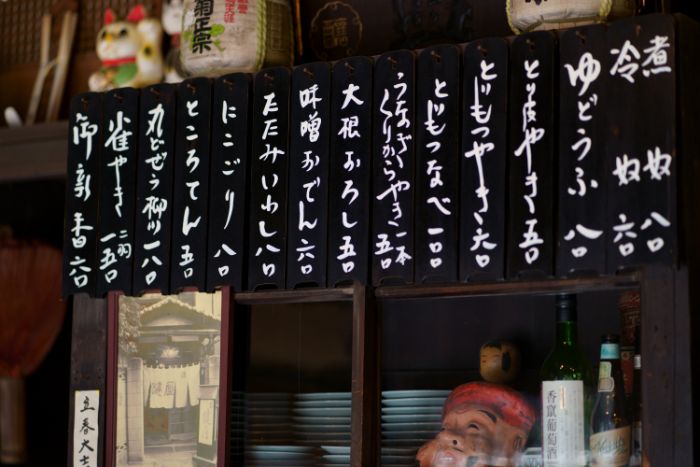 煮奴 八〇
冷奴 六〇
ゆどうふ 八〇
とり皮やき 五〇
とりもつやき 六〇
とりもつなべ 一〇〇
うなぎ
くりからやき 一本 五〇
大根おろし 五〇
味噌おでん 六〇
たたみいわし 八〇
にこごり 八〇
ところてん 五〇
丸どぜう柳川 一八〇
雀やき 二羽 一五〇
御新香 六〇
菊正宗
香竄葡萄酒
立春大吉